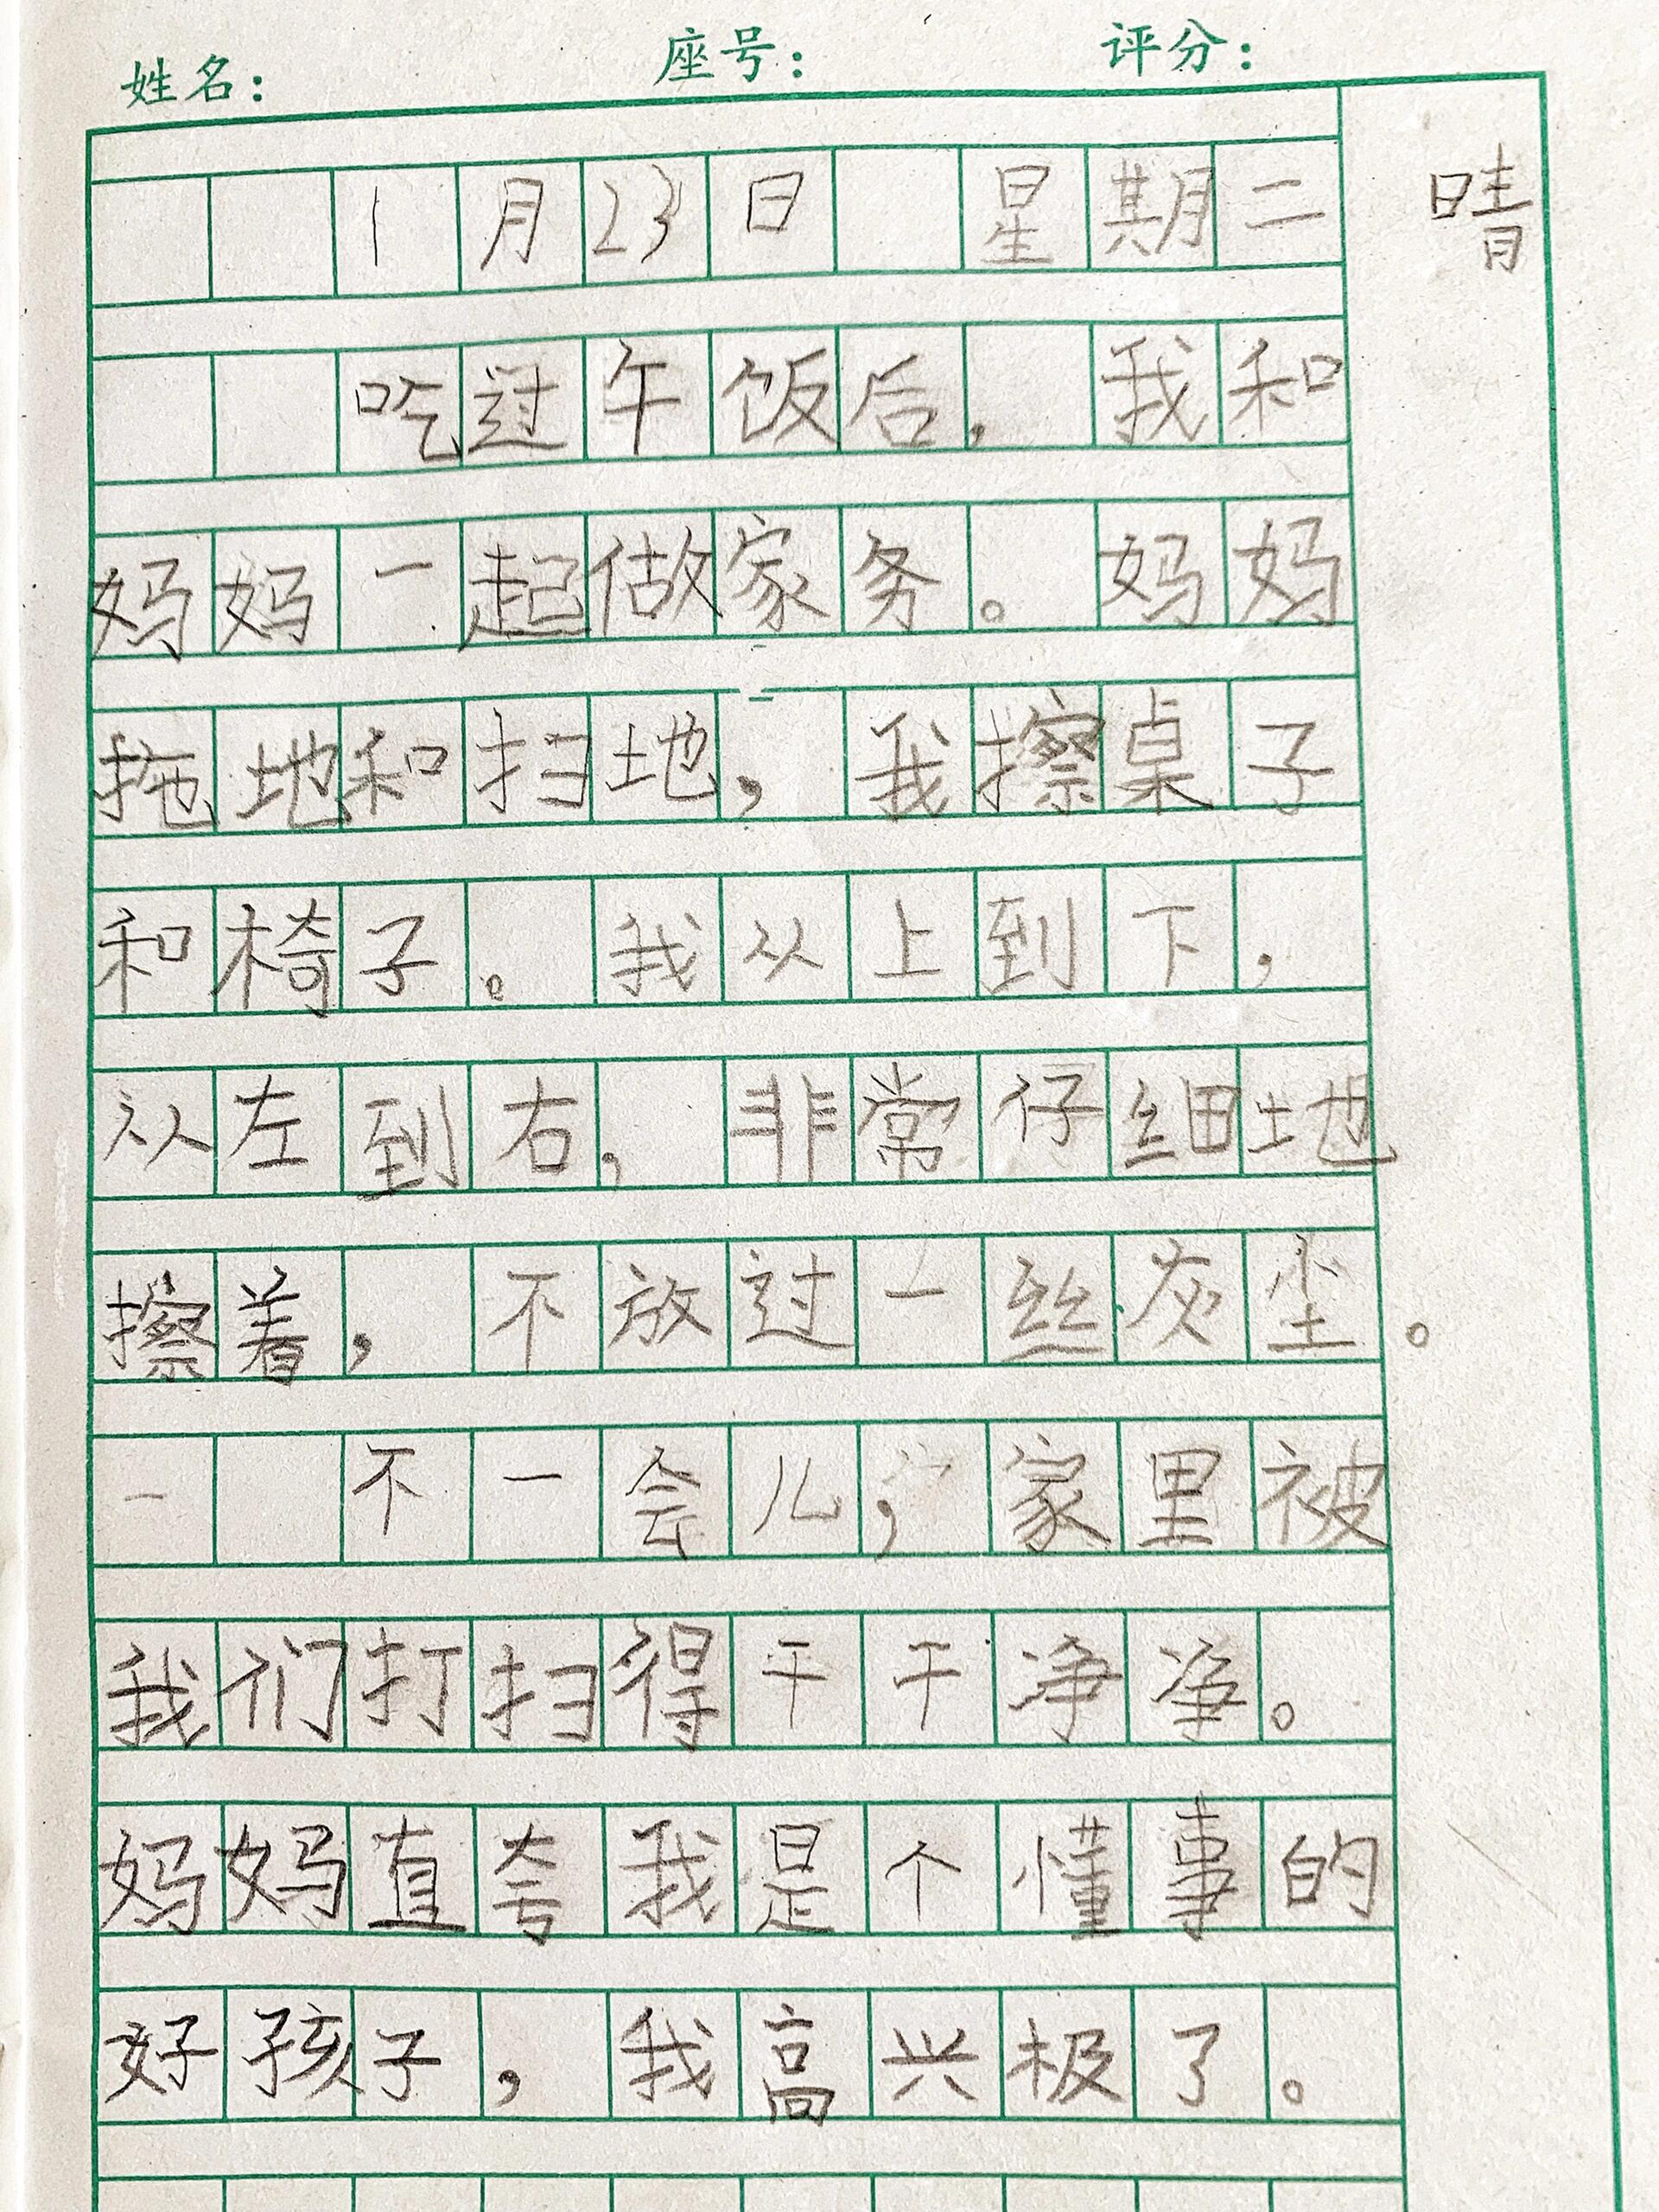 姓名： 座号： 评分：
1月23日 星期二 晴
吃过午饭后，我和
妈妈一起做家务。妈妈
拖地和扫地，我擦桌子
和椅子。我从上到下，
从左到右，非常仔细地
擦着，不放过一丝灰尘。
不一会儿，家里被
我们打扫得干干净净。
妈妈直夸我是个懂事的
好孩子，我高兴极了。